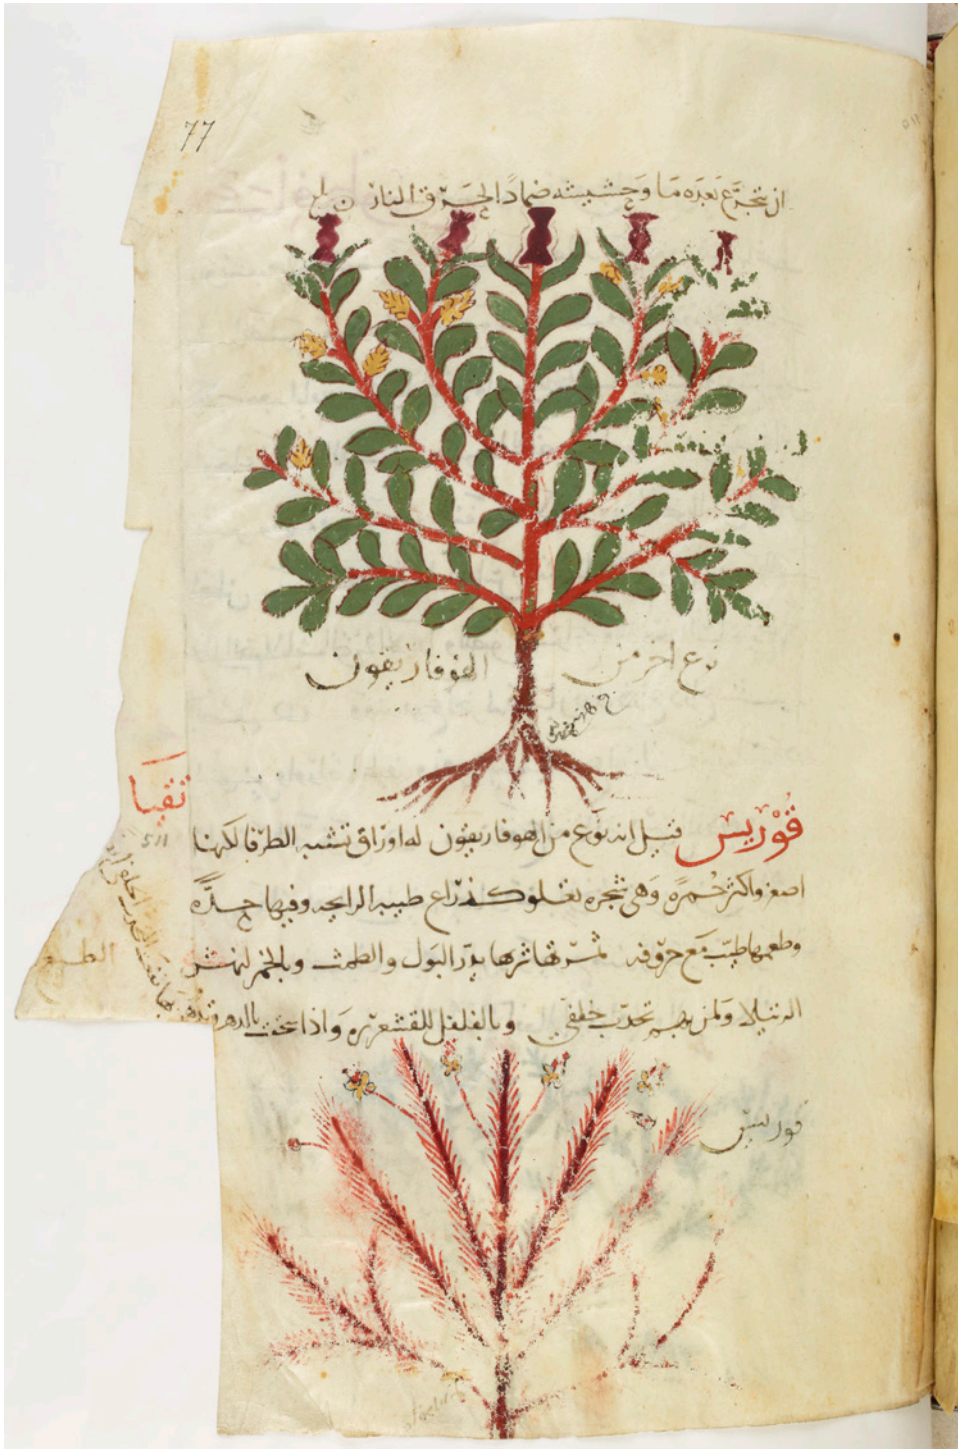 77
ان تتجرع بعده ما وحشيشه ضمادا لحرق النار
نوع اخر من الهوفاريقون
قوريس قيل انه نوع من الهوفاريقون له اوراق تشبه الطرفا لكنها
اصغر واكثر حمرة وهى شجره تعلو كذراع طيبه الرايحه وفيها حدة
وطعمها طيب مع حروفه ثمرتها شربها يدر البول والطمث وبالخمر لنهش
الرتيلا ولمن به تحدب خلفي وبالفلفل للقشعريره واذا سحقت بالدهن
قوريس
511
الطبع